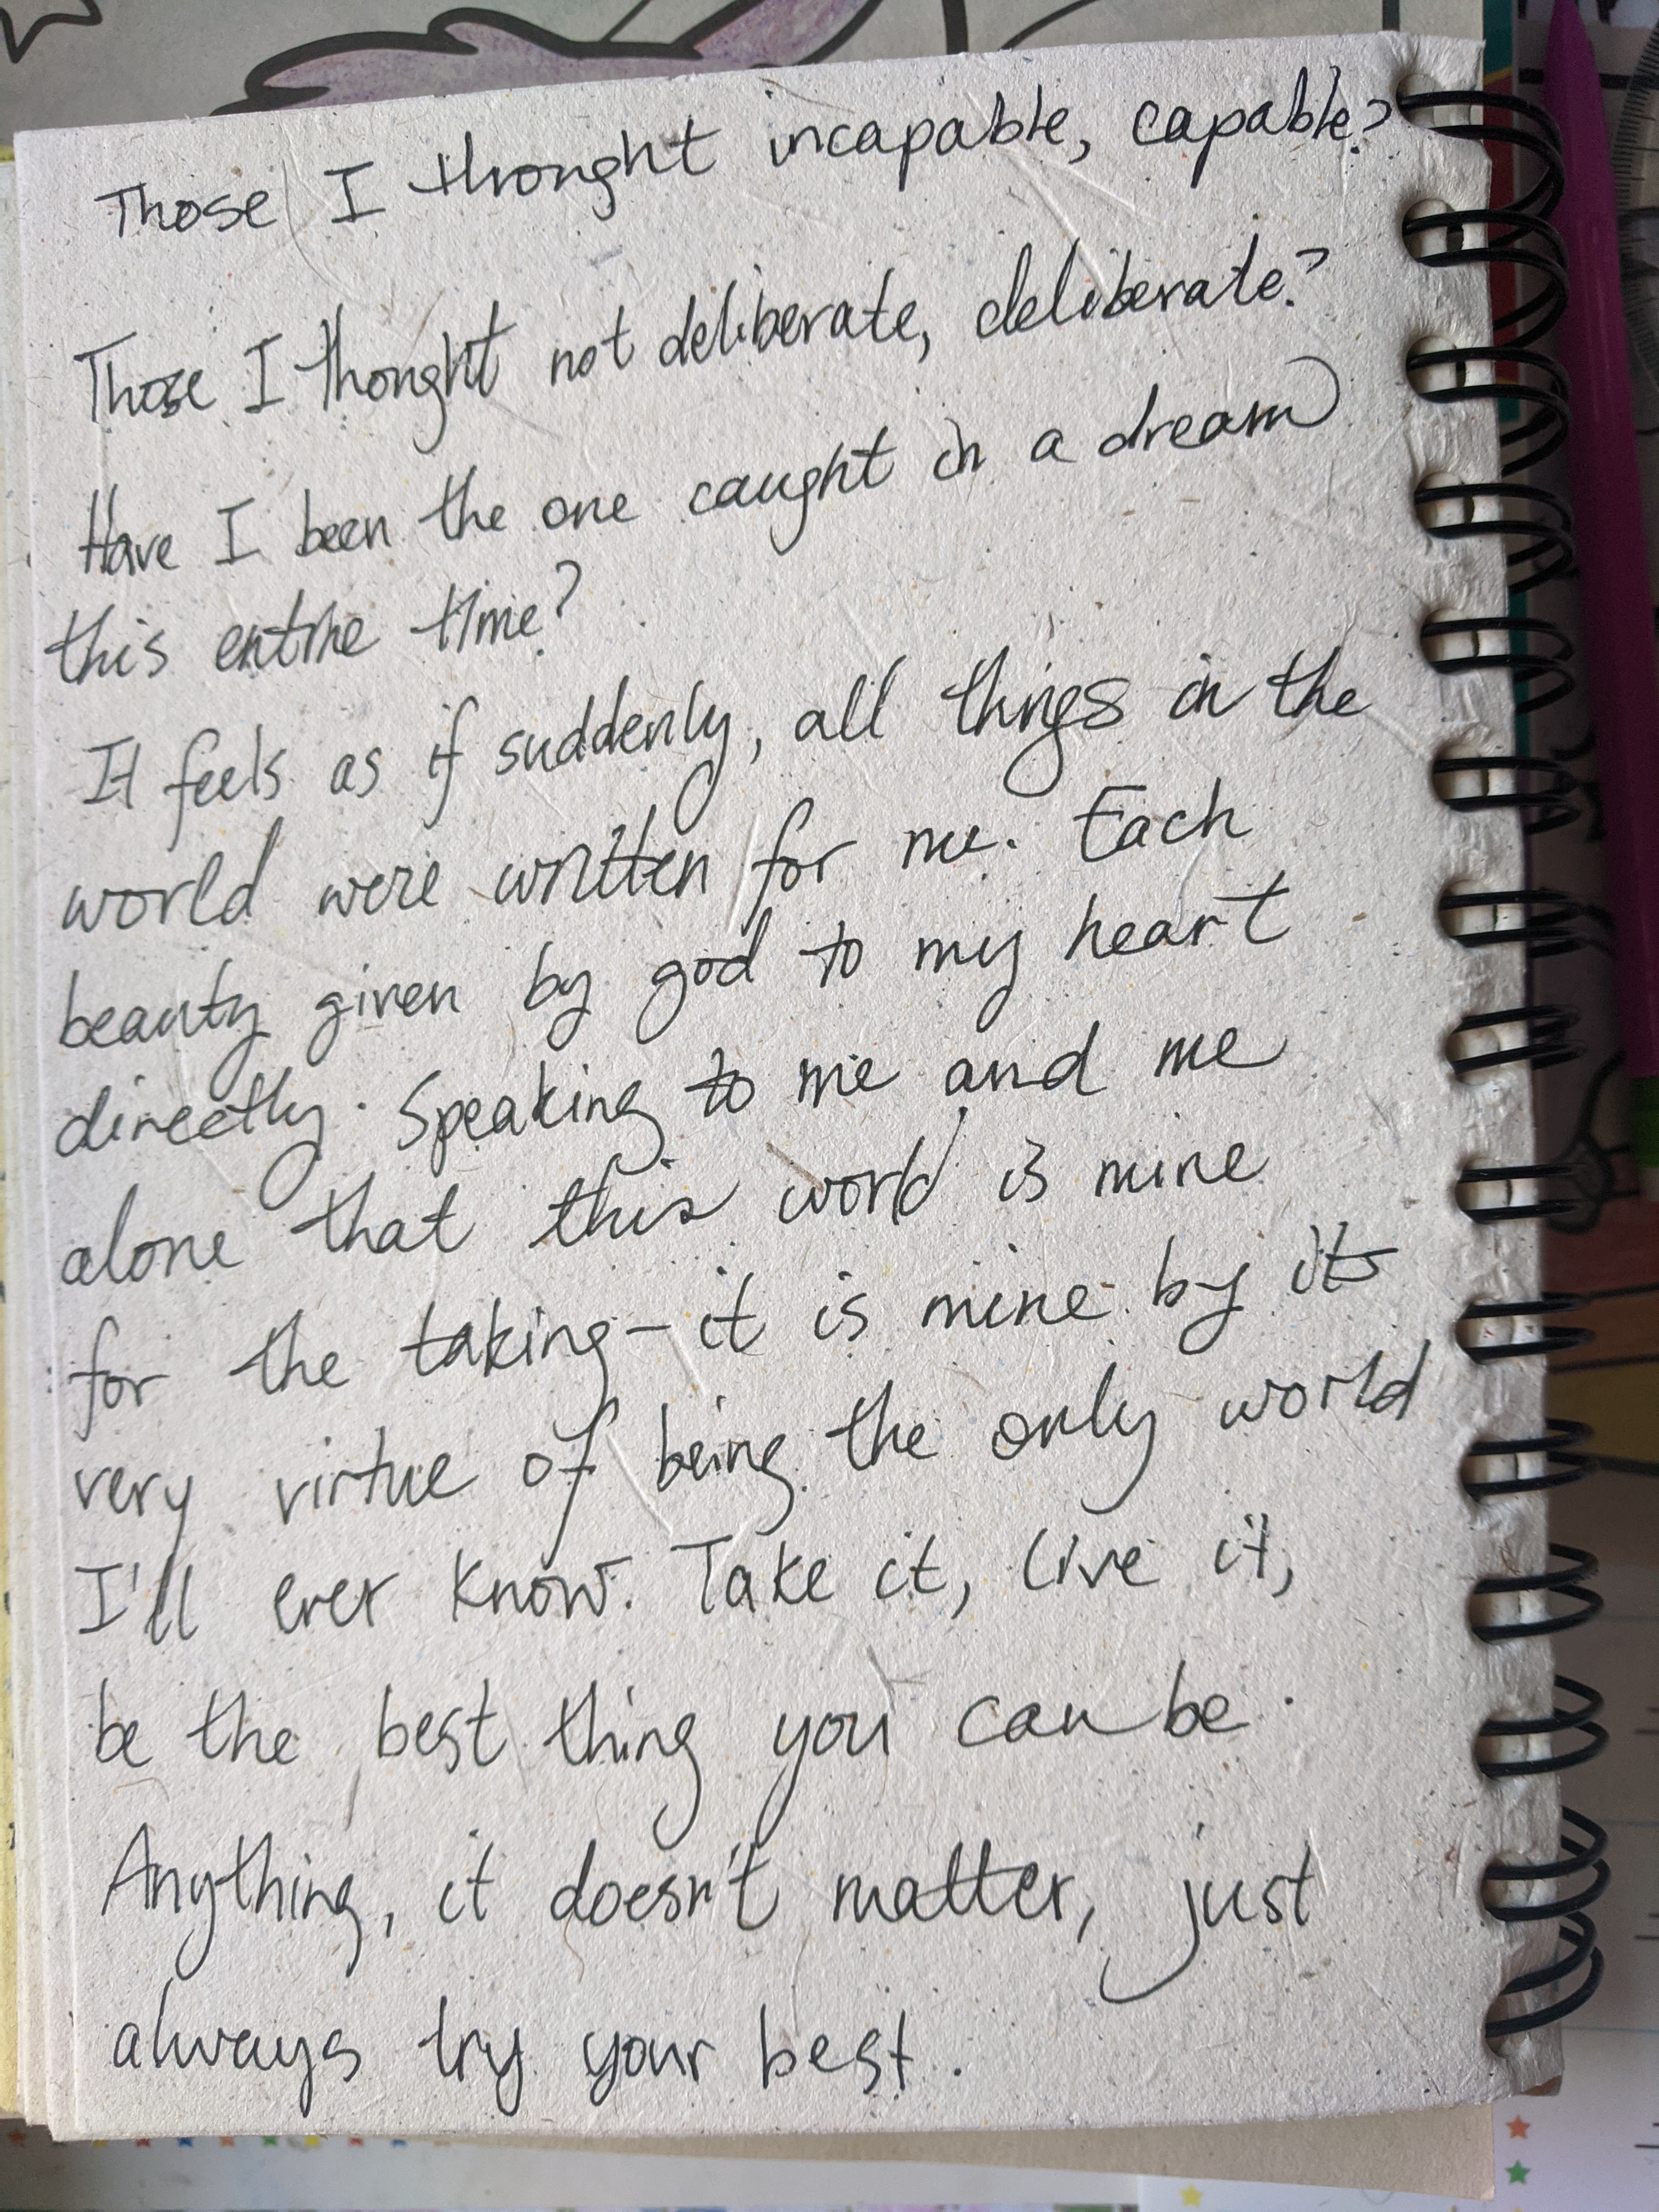 Those I throught incapable, capable?
Those I thought not deliberate, deliberate?
Have I been the one caught in a dream
this entire time?
It feels as if suddenly, all things in the
world were written for me. Each
beauty given by god to my heart
directly. Speaking to me and me
alone that this world is mine
for the taking - it is mine by its
very virtue of being the only world
I'll ever know. Take it, live it,
be the best thing you can be.
Anything, it doesn't matter, just
always try your best.